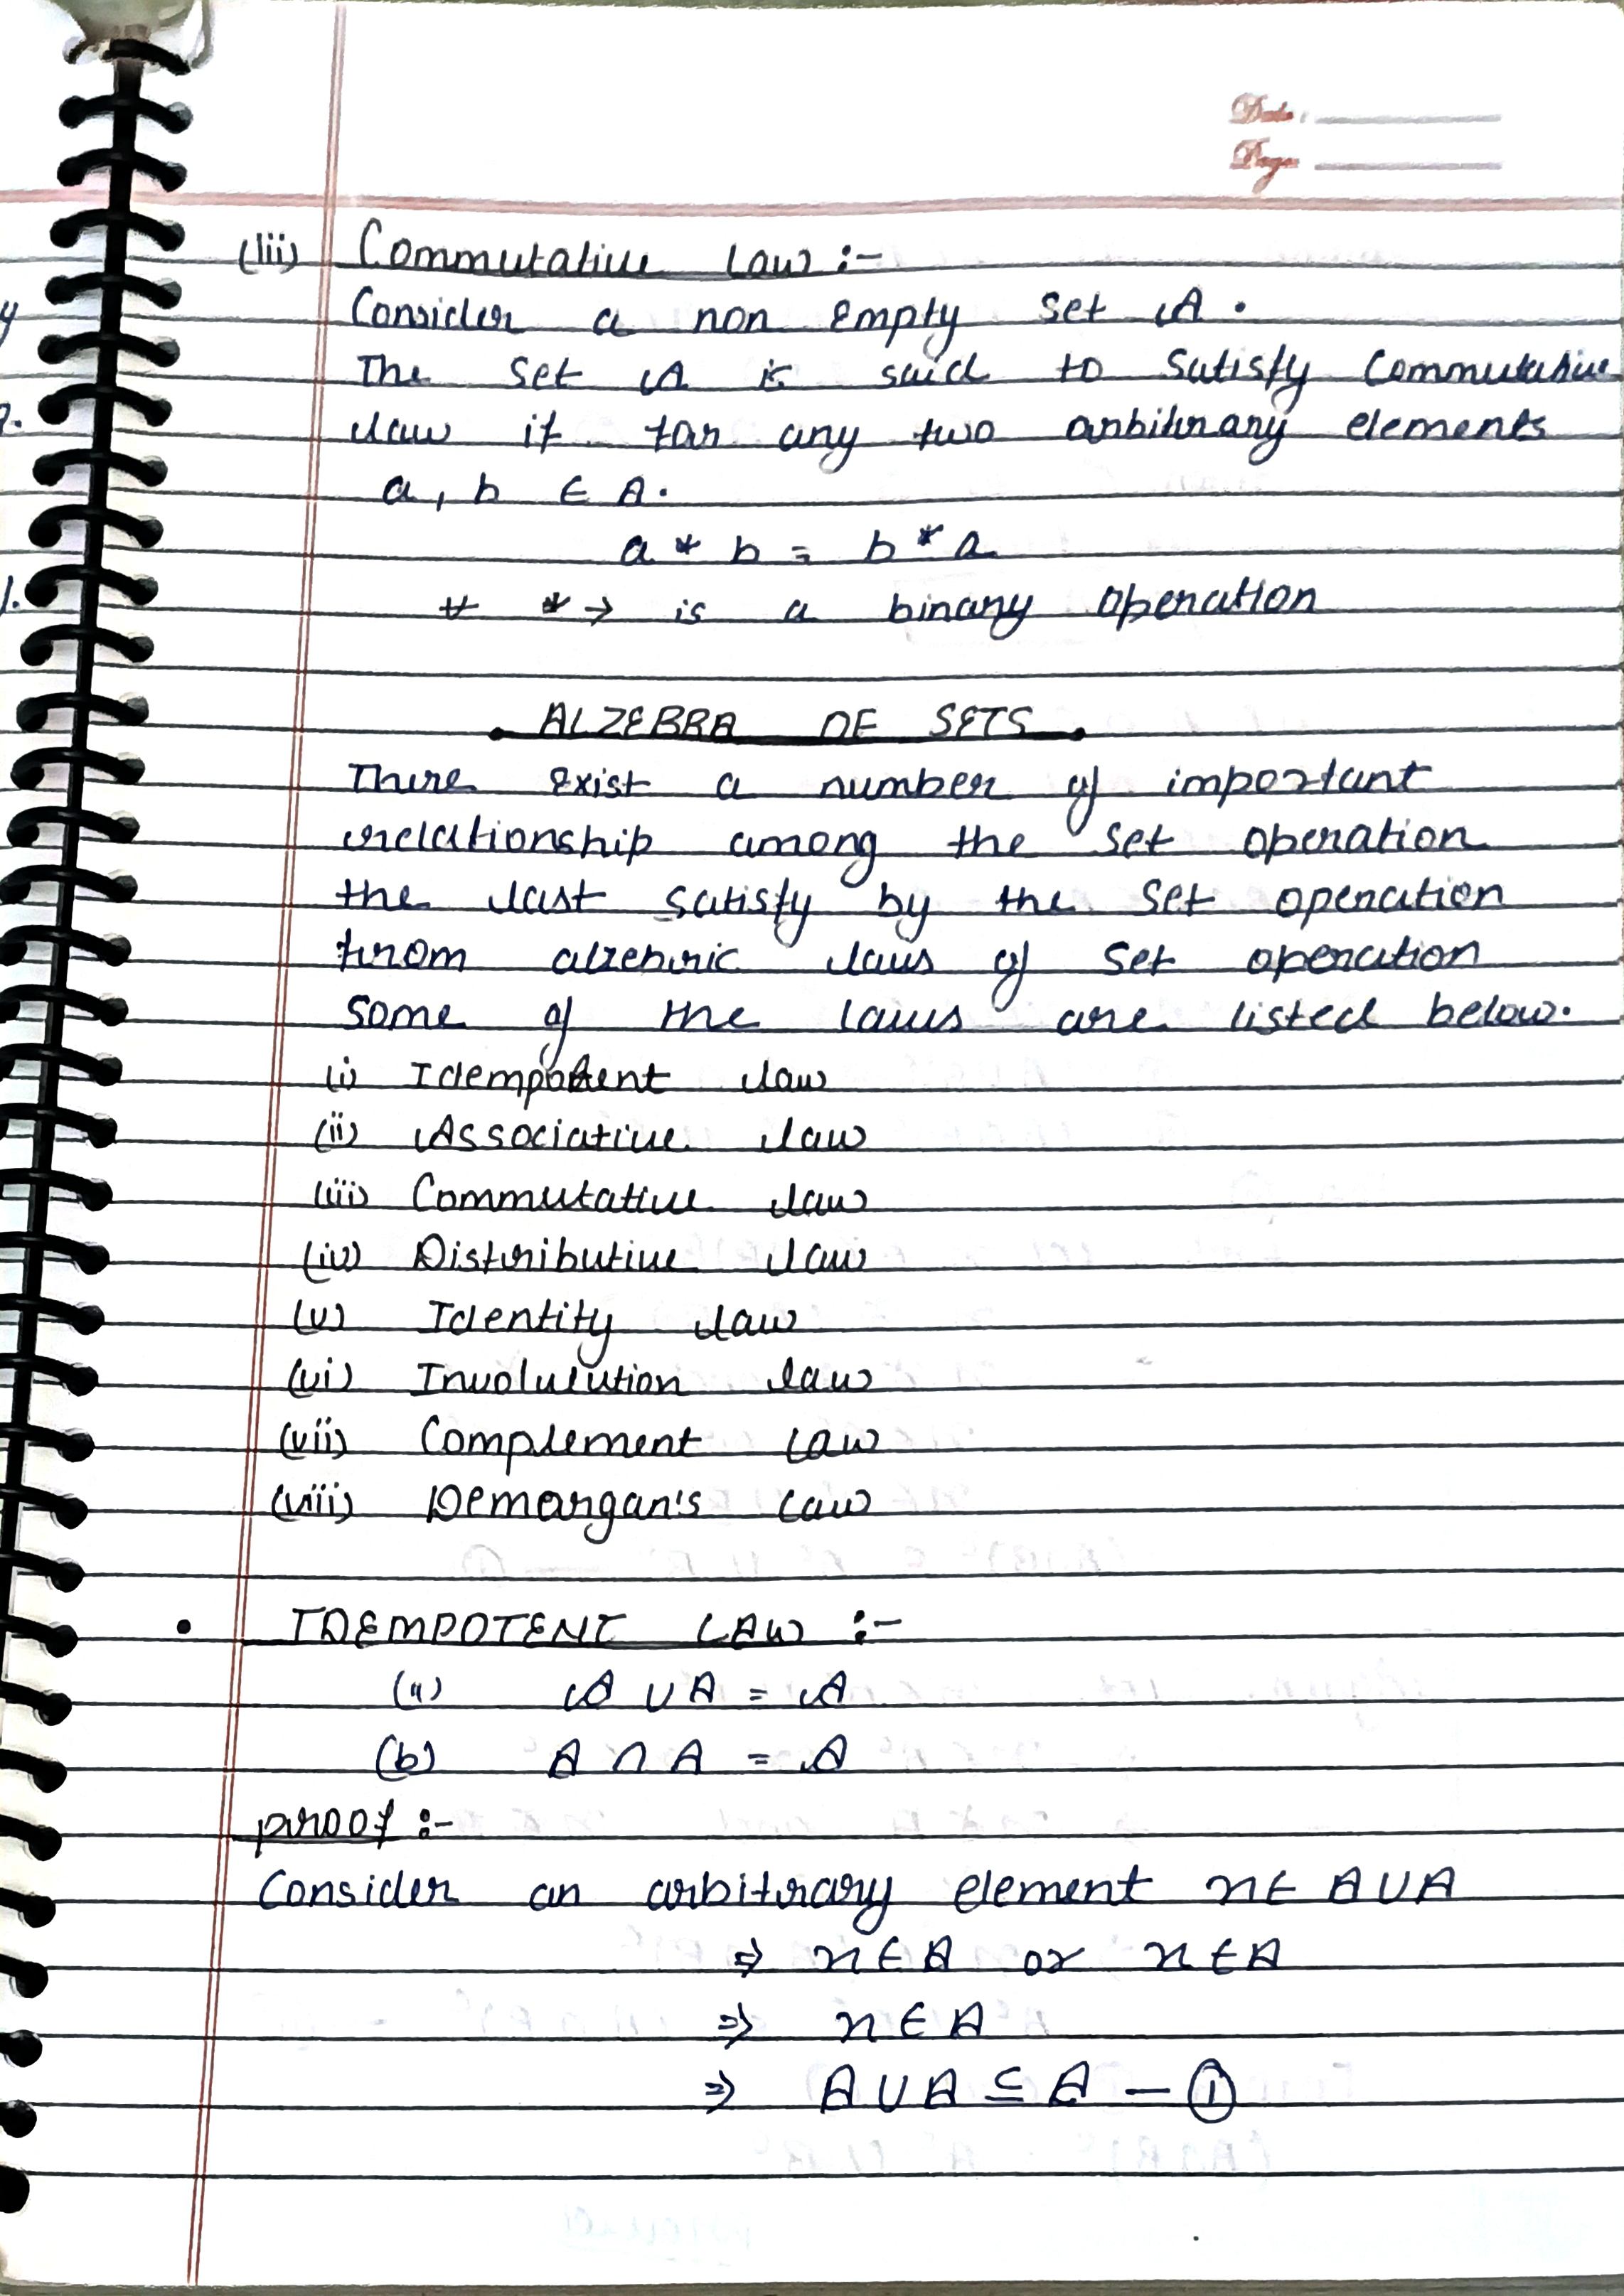 Date :
Page
(iii) Commutative Law :-
Consider a non Empty Set A .
The Set A is said to Satisfy Commutative
Law if for any two arbitrary elements
a, b ∈ A.
a * b = b * a
# * → is a binary operation
ALZEBRA OF SETS
There Exist a number of important
relationship among the Set operation
the last satisfy by the Set operation
from alzebric laws of Set operation
Some of the laws are listed below.
(i) Idempotent law
(ii) Associative law
(iii) Commutative law
(iv) Distributive law
(v) Identity law
(vi) Involulution law
(vii) Complement Law
(viii) Demorgan's Law
• IDEMPOTENT LAW :-
(a) A ∪ A = A
(b) A ∩ A = A
proof :-
Consider an arbitrary element x ∈ A ∪ A
⇒ x ∈ A or x ∈ A
⇒ x ∈ A
⇒ A ∪ A ⊆ A — ①